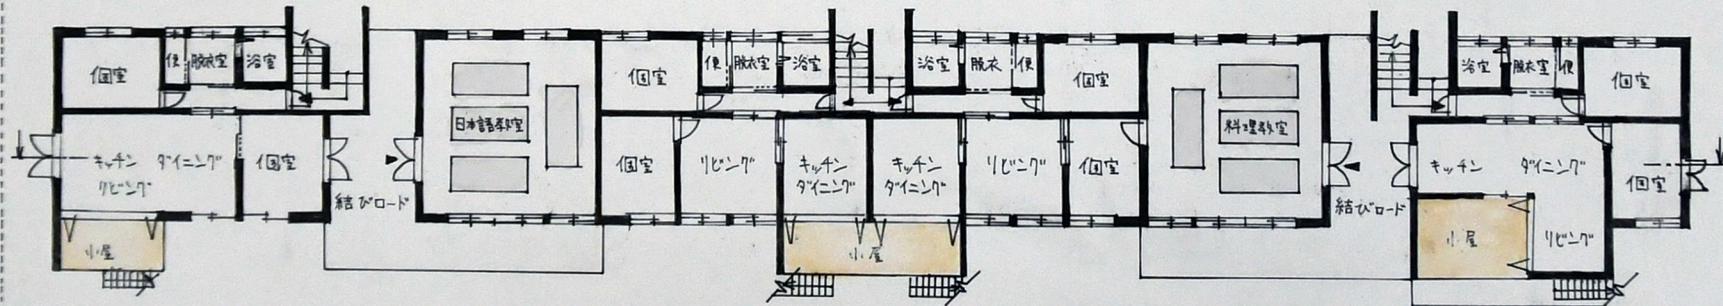 個室
便
脱衣室
浴室
キッチン ダイニング
リビング
個室
小屋
結びロード
日本語教室
個室
便
脱衣室
浴室
個室
リビング
キッチン
ダイニング
小屋
浴室
脱衣
便
個室
キッチン
ダイニング
リビング
個室
料理教室
結びロード
浴室
脱衣室
便
個室
キッチン ダイニング
リビング
個室
小屋